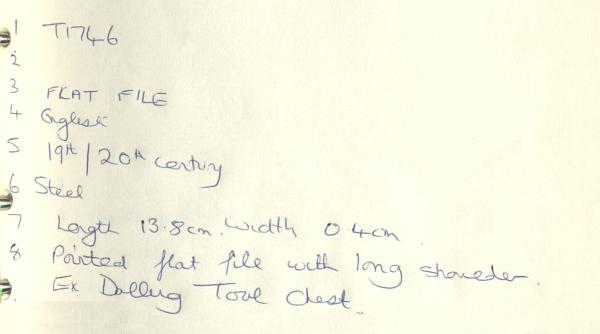 1 T1746
2
3 FLAT FILE
4 English
5 19th/20th century
6 Steel
7 Length 13.8cm. Width 0.4cm.
8 Pointed flat file with long shoulder.
Ex Tool Chest.